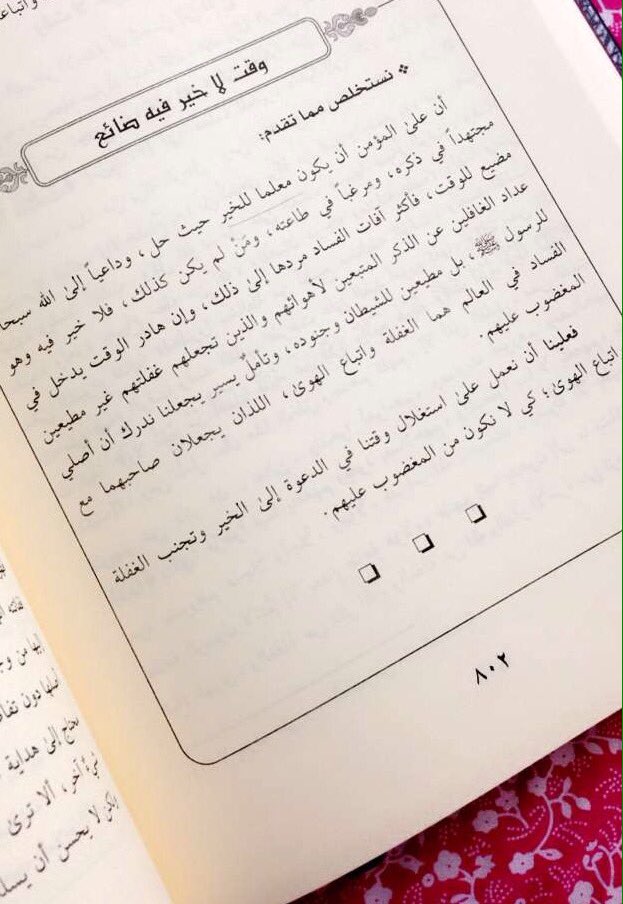 وقت لا خير فيه ضائع
❖ نستخلص مما تقدم:
أن على المؤمن أن يكون معلما للخير حيث حل، وداعياً إلى الله سبحا
مجتهداً في ذكره، ومرغباً في طاعته، ومَنْ لم يكن كذلك، فلا خير فيه وهو
مضيع للوقت، فأكثر آفات الفساد مردها إلى ذلك، وإن هادر الوقت يدخل في
عداد الغافلين عن الذكر المتبعين لأهوائهم والذين تجعلهم غفلتهم غير مطيعين
للرسول ﷺ، بل مطيعين للشيطان وجنوده، وتأملٌ يسير يجعلنا ندرك أن أصلي
الفساد في العالم هما الغفلة واتباع الهوى، اللذان يجعلان صاحبهما مع
المغضوب عليهم.
فعلينا أن نعمل على استغلال وقتنا في الدعوة إلى الخير وتجنب الغفلة
اتباع الهوى؛ كي لا نكون من المغضوب عليهم.
٨٠٢
إليها من
دون
إلى هداية
شيء آخر، ألا ترى
لا يحسن أن